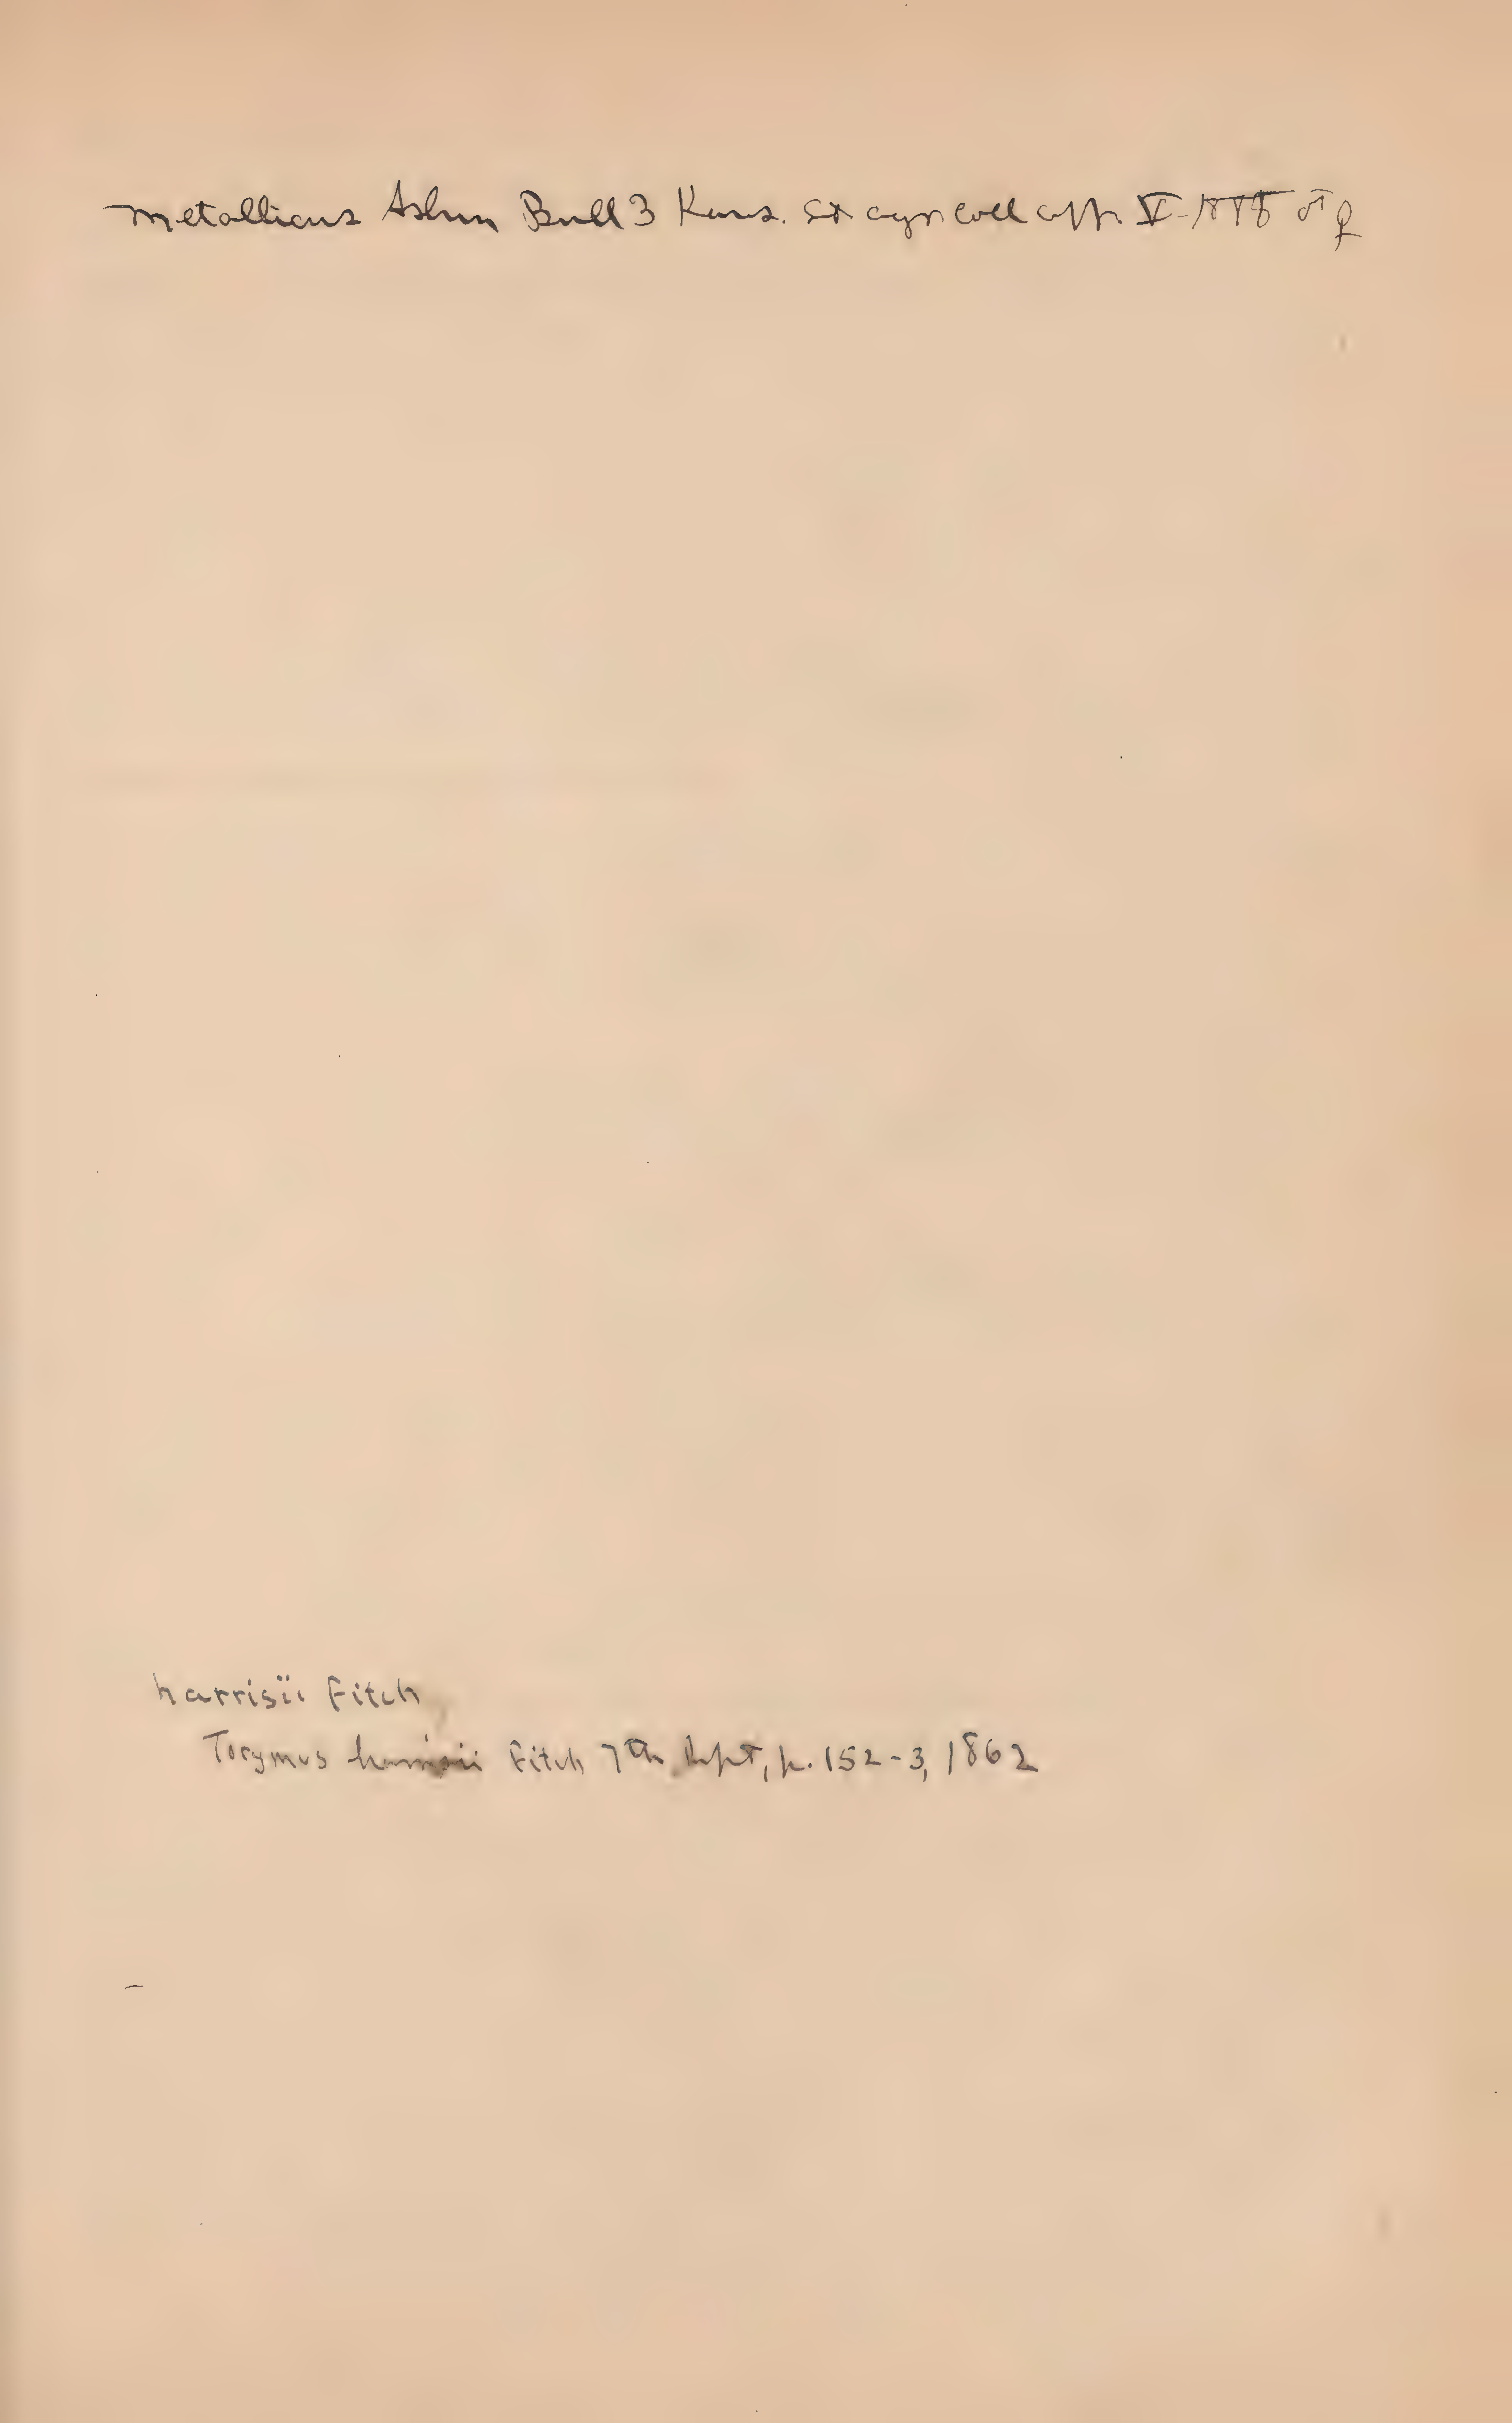 metallicus Ashm Bull 3 Kans. St agri Coll app V-1888 ♂ ♀
harrisii Fitch
Torymus harrisii Fitch 7th Rept, p. 152-3, 1862